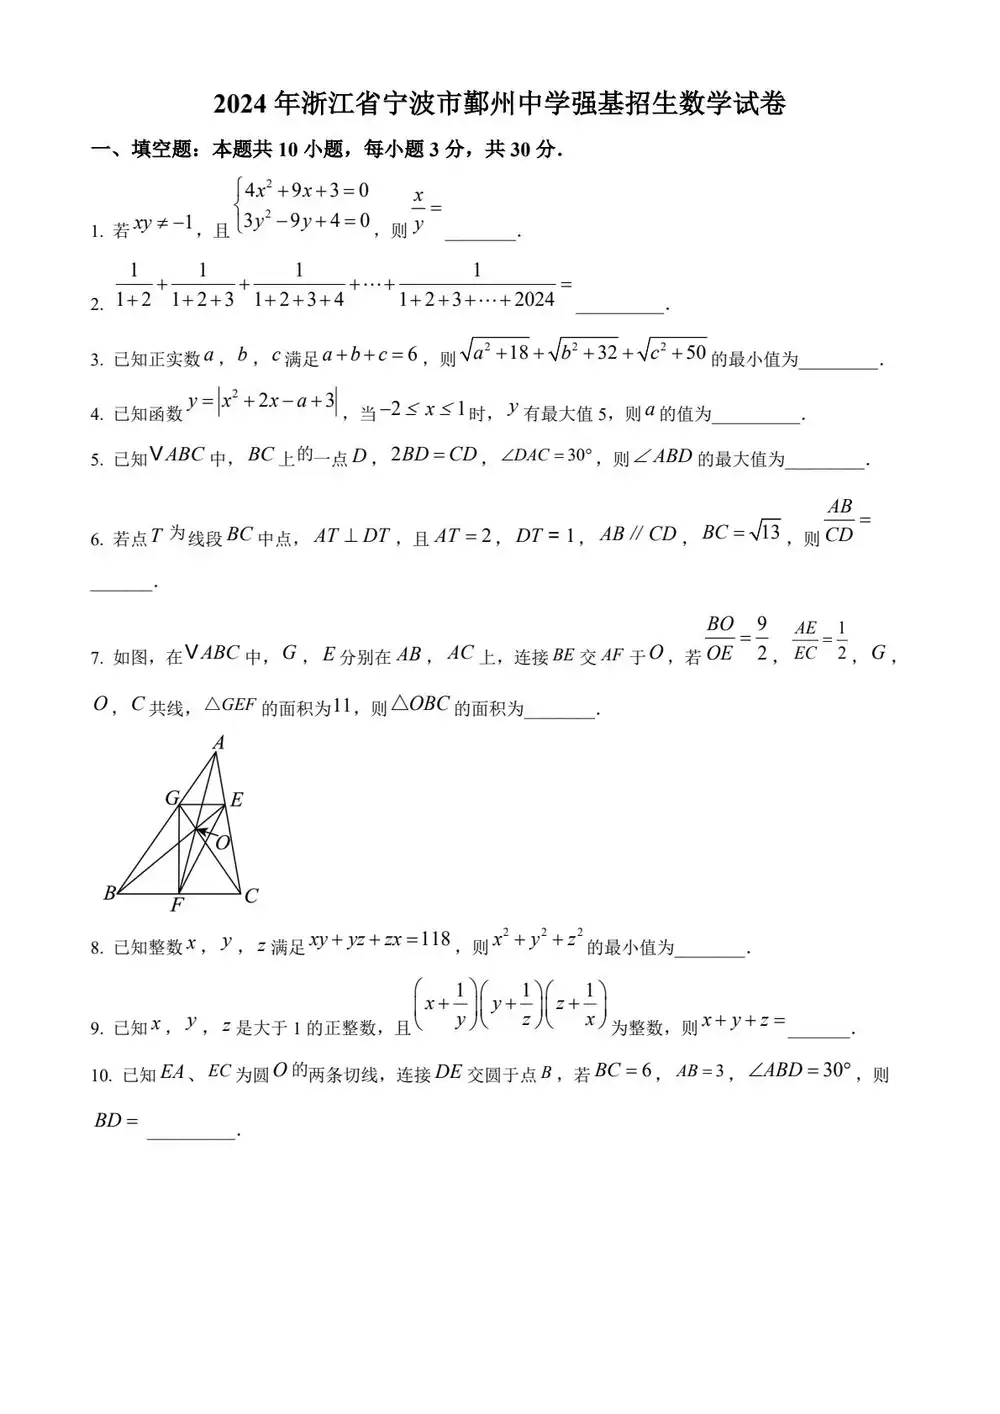 2024 年浙江省宁波市鄞州中学强基招生数学试卷
一、填空题：本题共 10 小题，每小题 3 分，共 30 分．
1. 若 $xy \neq -1$，且 $\begin{cases} 4x^2+9x+3=0 \\ 3y^2-9y+4=0 \end{cases}$，则 $\frac{x}{y}=$ ________．
2. $\frac{1}{1+2}+\frac{1}{1+2+3}+\frac{1}{1+2+3+4}+\cdots+\frac{1}{1+2+3+\cdots+2024}=$ __________．
3. 已知正实数 a，b，c 满足 $a+b+c=6$，则 $\sqrt{a^2+18}+\sqrt{b^2+32}+\sqrt{c^2+50}$ 的最小值为_________．
4. 已知函数 $y=|x^2+2x-a+3|$，当 $-2\leq x\leq 1$ 时，y 有最大值 5，则 a 的值为__________．
5. 已知 V ABC 中，BC 上的一点 D，2BD = CD，∠DAC = 30°，则∠ABD 的最大值为_________．
6. 若点 T 为线段 BC 中点，AT ⊥ DT，且 AT = 2，DT = 1，AB // CD，$BC=\sqrt{13}$，则 $\frac{AB}{CD}=$
_______．
7. 如图，在 V ABC 中，G，E 分别在 AB，AC 上，连接 BE 交 AF 于 O，若 $\frac{BO}{OE}=\frac{9}{2}$，$\frac{AE}{EC}=\frac{1}{2}$，G，
O，C 共线，△GEF 的面积为11，则△OBC 的面积为________．
A
G E
O
B F C
8. 已知整数 x，y，z 满足 $xy+yz+zx=118$，则 $x^2+y^2+z^2$ 的最小值为________．
9. 已知 x，y，z 是大于 1 的正整数，且 $\left(x+\frac{1}{y}\right)\left(y+\frac{1}{z}\right)\left(z+\frac{1}{x}\right)$ 为整数，则 $x+y+z=$ _______．
10. 已知 EA、EC 为圆 O 的两条切线，连接 DE 交圆于点 B，若 BC = 6，AB = 3，∠ABD = 30°，则
BD = __________．